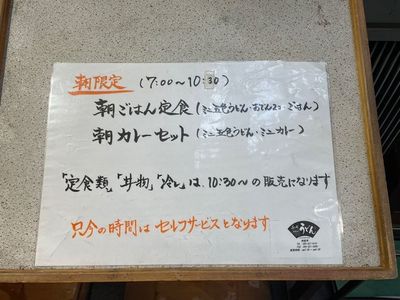 朝限定 (7:00～10:30)
朝ごはん定食(ミニ五色うどん・おでん2コ・ごはん)
朝カレーセット(ミニ五色うどん・ミニカレー)
「定食類」「丼物」「冷し」は、10:30～の販売になります
只今の時間は セルフサービスとなります
うどん